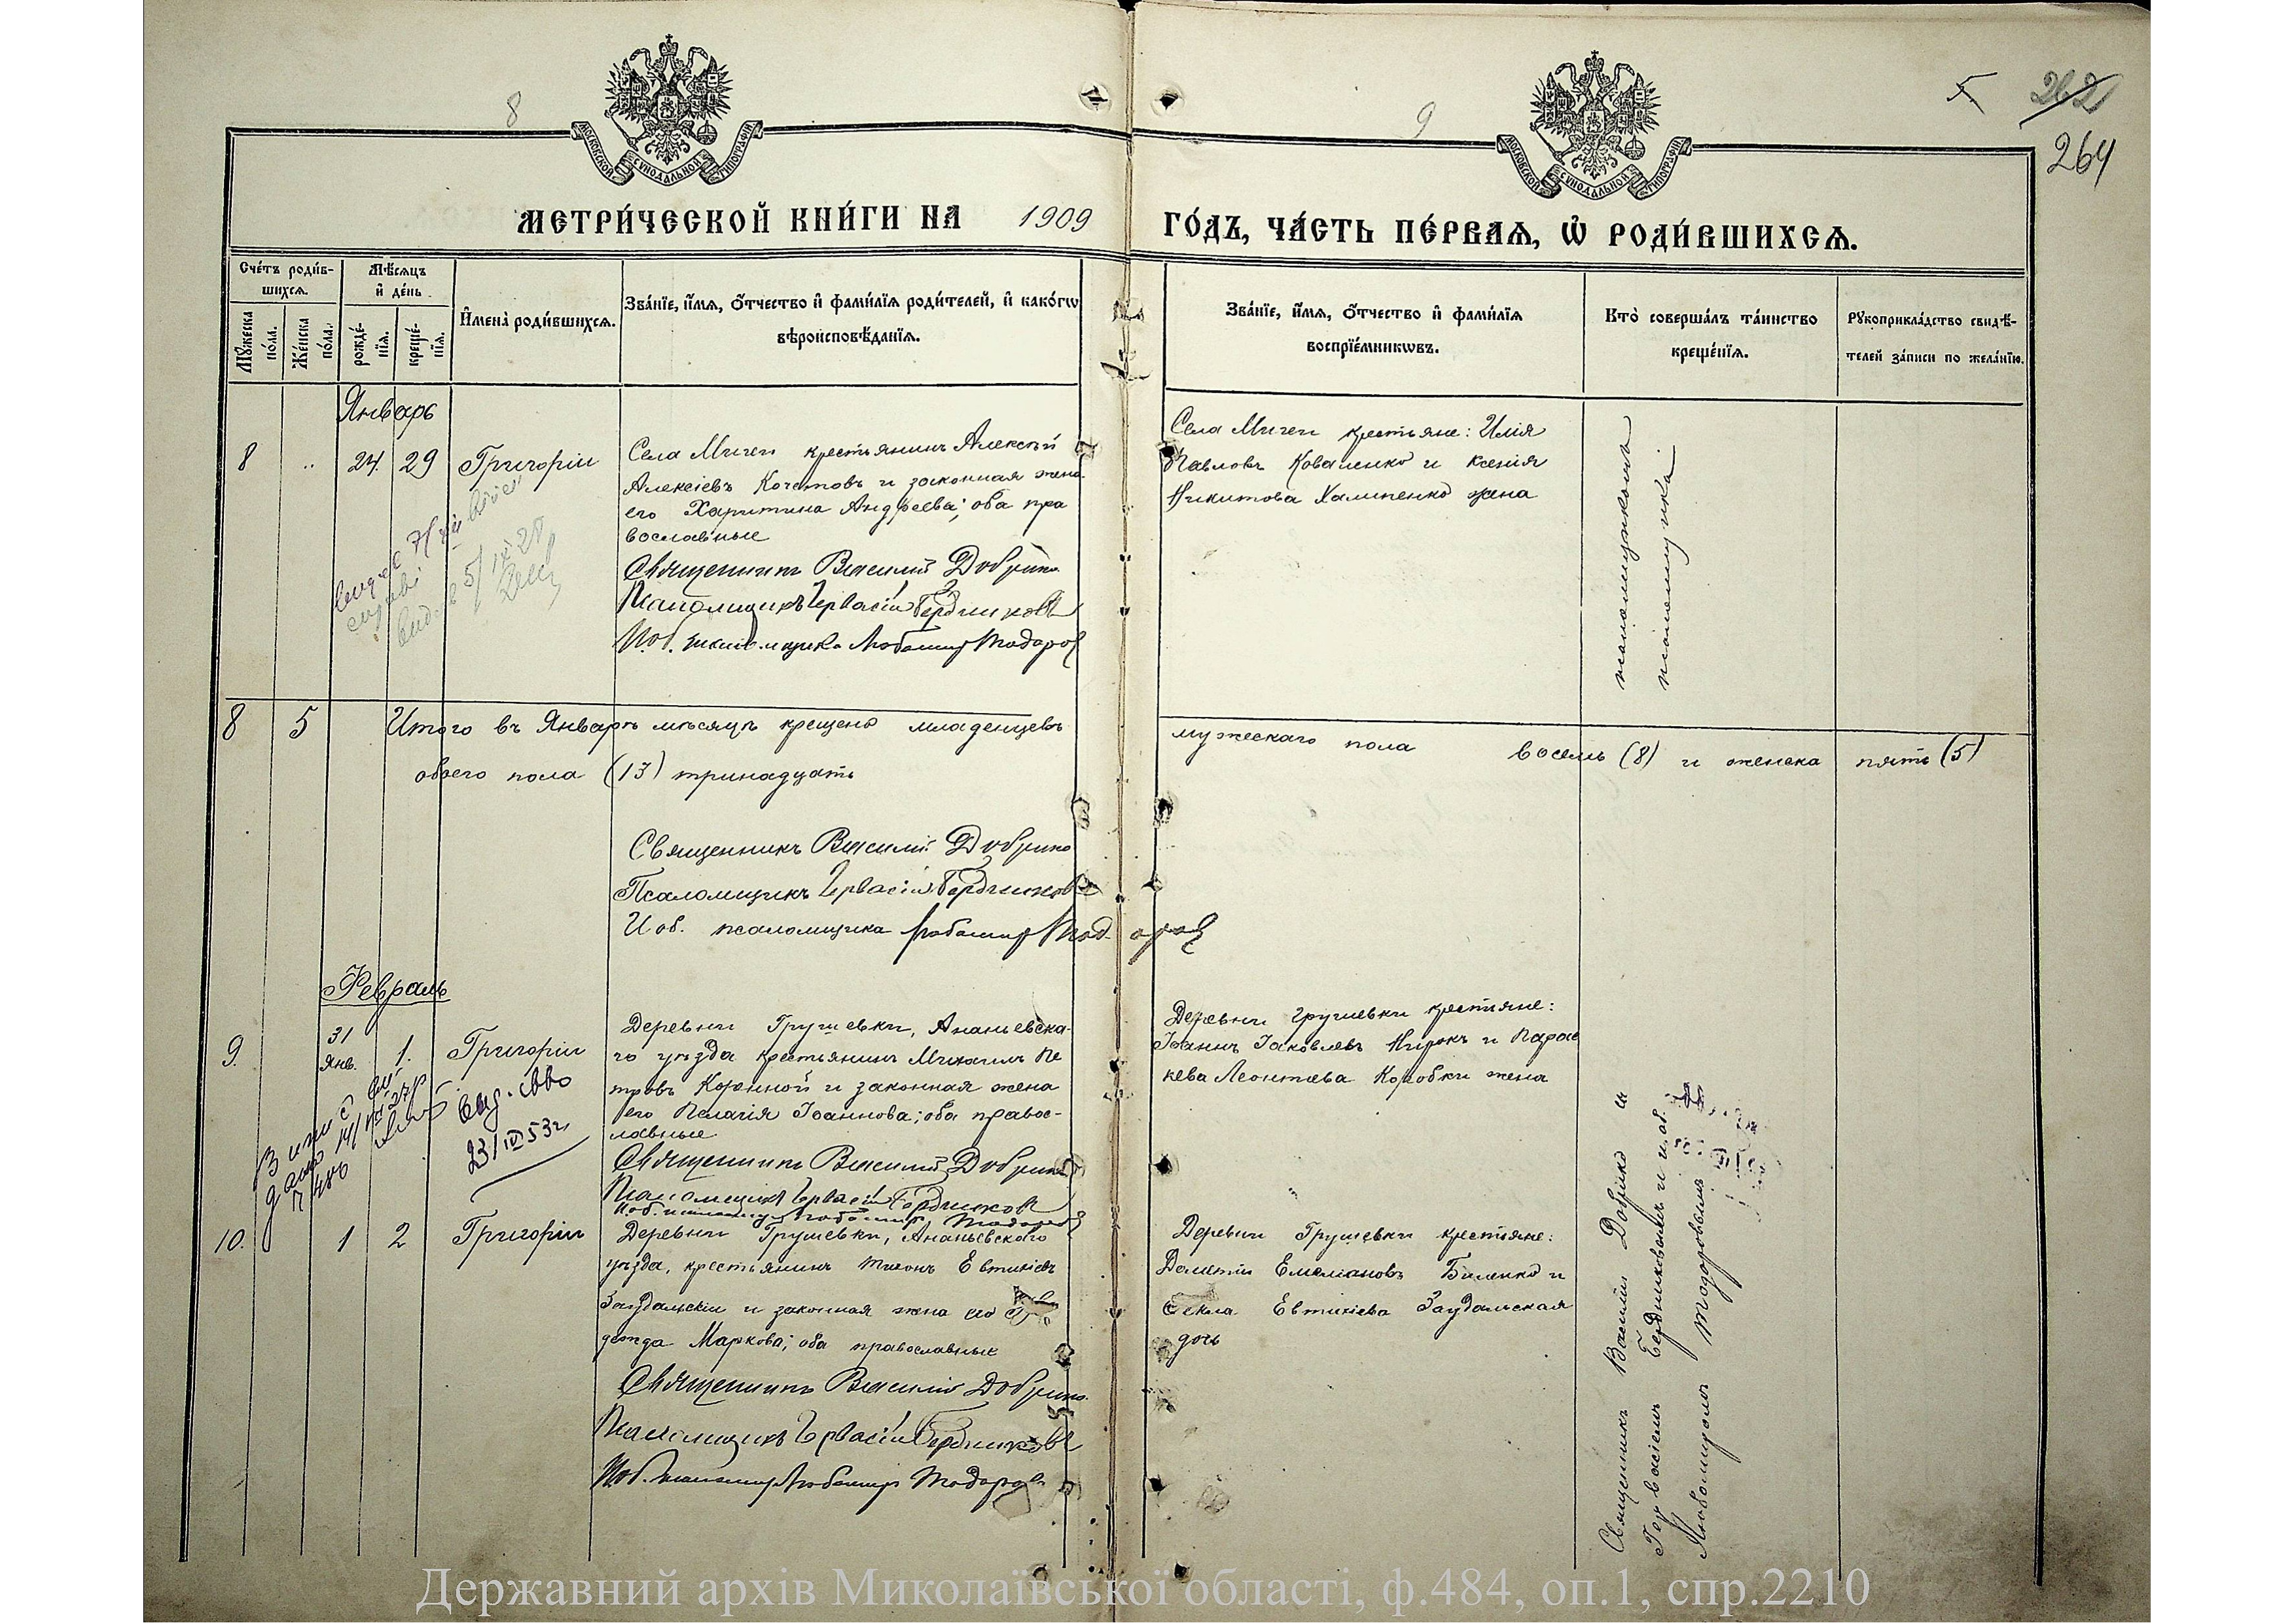 8
9
5.
262
264
МОСКОВСКОЙ СѴНОДАЛЬНОЙ ТИПОГРАФІИ
МОСКОВСКОЙ СѴНОДАЛЬНОЙ ТИПОГРАФІИ
МЕТРИ́ЧЕСКОЙ КНИ́ГИ НА 1909 ГО́ДЪ, ЧА́СТЬ ПЕ́РВАѦ, Ѡ҆ РОДИ́ВШИХСѦ.
Сче́тъ роди́в-
шихсѧ.
Мꙋ́жеска
по́ла.
Же́нска
по́ла.
Мѣ́сѧцъ
и҆ де́нь
рожде́-
нїѧ.
креще́-
нїѧ.
И҆мена̀ роди́вшихсѧ.
Зва́нїе, и҆́мѧ, ѻ҆́тчество и҆ фами́лїѧ роди́телей, и҆ како́гѡ
вѣроисповѣ́данїѧ.
Зва́нїе, и҆́мѧ, ѻ҆́тчество и҆ фами́лїѧ
воспрїе́мникѡвъ.
Кто̀ соверша́лъ та́инство
креще́нїѧ.
Рꙋкоприкла́дство свидѣ́-
телей за́писи по жела́нїю.
Январь
8 24 29 Григорій
Села Мигеи крестьянинъ Алексѣй
Алексіевъ Кочетовъ и законная жена
его Харитина Андреева; оба пра
вославные
Священникъ Василій Добрино
Псаломщикъ Гервасій Бердниковъ
И. об. псаломщика Любомир Тодоров
Села Мигеи крестьяне: Илія
Павловъ Коваленко и Ксенія
Никитова Халипенко жена
псаломщикомъ
псаломщика.
8 5 Итого въ Январѣ мѣсяцѣ крещено младенцевъ мужескаго пола восемь (8) и женска пять (5)
обоего пола (13) тринадцать
Священникъ Василій Добрино
Псаломщикъ Гервасій Бердниковъ
И об. псаломщика Любомир Тодоров
Февраль
9. 31 Янв. 1. Григорій
Деревни Грушевки, Ананьевска-
го уѣзда крестьянинъ Михаилъ Пе
тровъ Коренной и законная жена
его Пелагія Іоаннова; оба правос-
лавные
Священникъ Василій Добрино
Псаломщикъ Гервасій Бердников
И. об. псаломщ. Любомир Тодоров
Деревни Грушевки крестьяне:
Іоаннъ Іаковлевъ Нирокъ и Парас
кева Леонтьева Коробки жена
Вид. свво
23/IV 53 г.
10. 1 2 Григорій
Деревни Грушевки, Ананьевскаго
уѣзда, крестьянинъ Тихонъ Евтихіевъ
Заудальскій и законная жена его
дежда Маркова; оба православные
Священникъ Василій Добрино
Псаломщикъ Гервасій Бердниковъ
И. об. псаломщ Любомир Тодоровъ
Деревни Грушевки крестьяне:
Дометій Емеліановъ Биленко и
Ѳекла Евтихіева Заудальская
дочь
Священникъ Василій Добрино и
Гервасіемъ Бердниковымъ и и. об.
Любомиромъ Тодоровымъ
Державний архів Миколаївської області, ф.484, оп.1, спр.2210